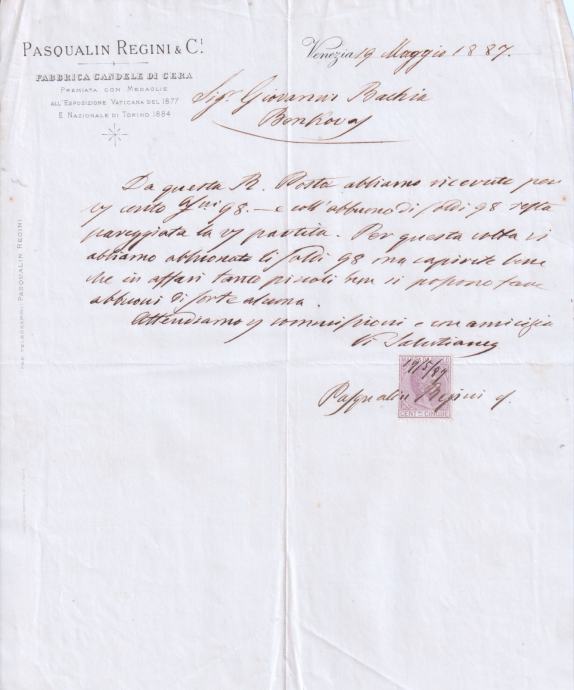 PASQUALIN REGINI & C.i
FABBRICA CANDELE DI CERA
PREMIATA CON MEDAGLIE
ALL'ESPOSIZIONE VATICANA DEL 1877
E NAZIONALE DI TORINO 1884
Venezia 19 Maggio 1887.
Sigr Giovanni
Benkovaz
Da questa R. Posta abbiamo ricevuto per
conto 98.- e coll'abbuono di soldi 98 resta
pareggiata la partita. Per questa volta vi
abbiamo abbuonato li soldi 98 ma capirete bene
che in affari tanto piccoli non si possono fare
abbuoni di sorte alcuna.
Attendiamo commissioni e con amicizia
Vi Salutiamo
19/5/87
Pasqualin Regini
CENT. CINQUE
PER TELEGRAMMI PASQUALIN REGINI